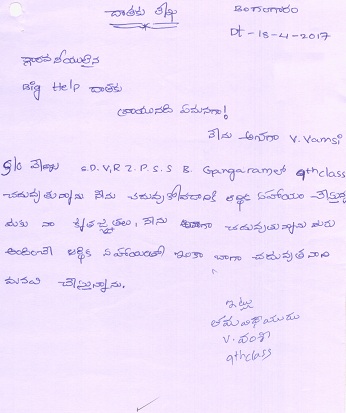 దాతకు లేఖ
బి.గంగారం
Dt - 18-4-2017
గౌరవనీయులైన
Big Help దాతకు
వ్రాయునది ఏమనగా!
నేను అనగా V. Vamsi
S/o వెంకట S.D.V.R Z.P.S.S B. Gangaramలో 9thclass
చదువుతున్నాను నేను చదువుకోవడానికి ఆర్థిక సహాయం చేస్తున్న
మీకు నా కృతజ్ఞతలు, నేను బాగా చదువుతున్నాను మీరు
అందించే ఆర్థిక సహాయంతో ఇంకా బాగా చదువుతానని
మనవి చేస్తున్నాను.
ఇట్లు
తమ విధేయుడు
V. వంశీ
9thclass